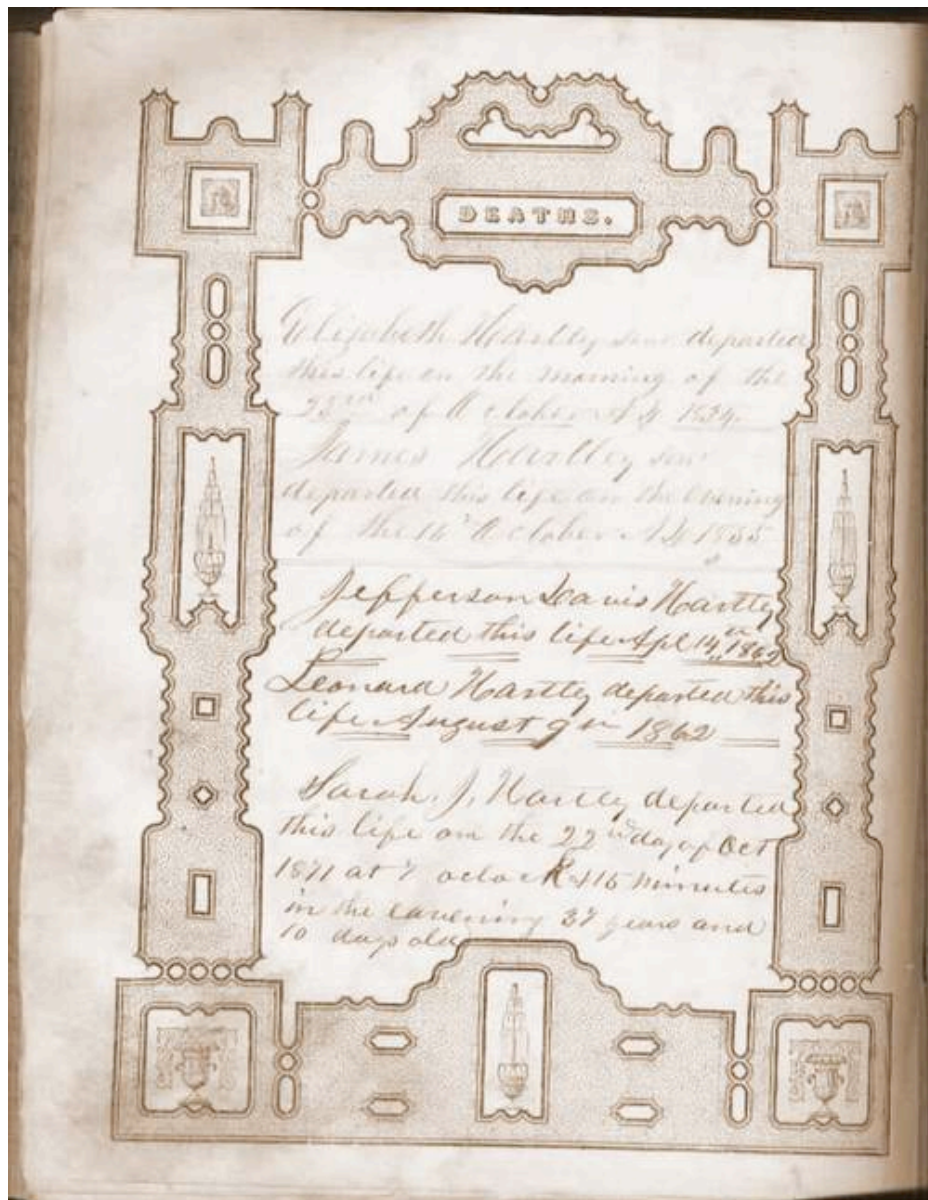 DEATHS.
Elizabeth Hartley senr departed
this life on the morning of the
23rd of October AD 1834.
James Hartley senr
departed this life on the evening
of the 16th October AD 1835
Jefferson Davis Hartley
departed this life Apl 14th 1862
Leonard Hartley departed this
life August 9th 1862
Sarah. J. Hartley departed
this life on the 22nd day of Oct
1871 at 7 oclock & 15 minutes
in the eavening 37 years and
10 days old